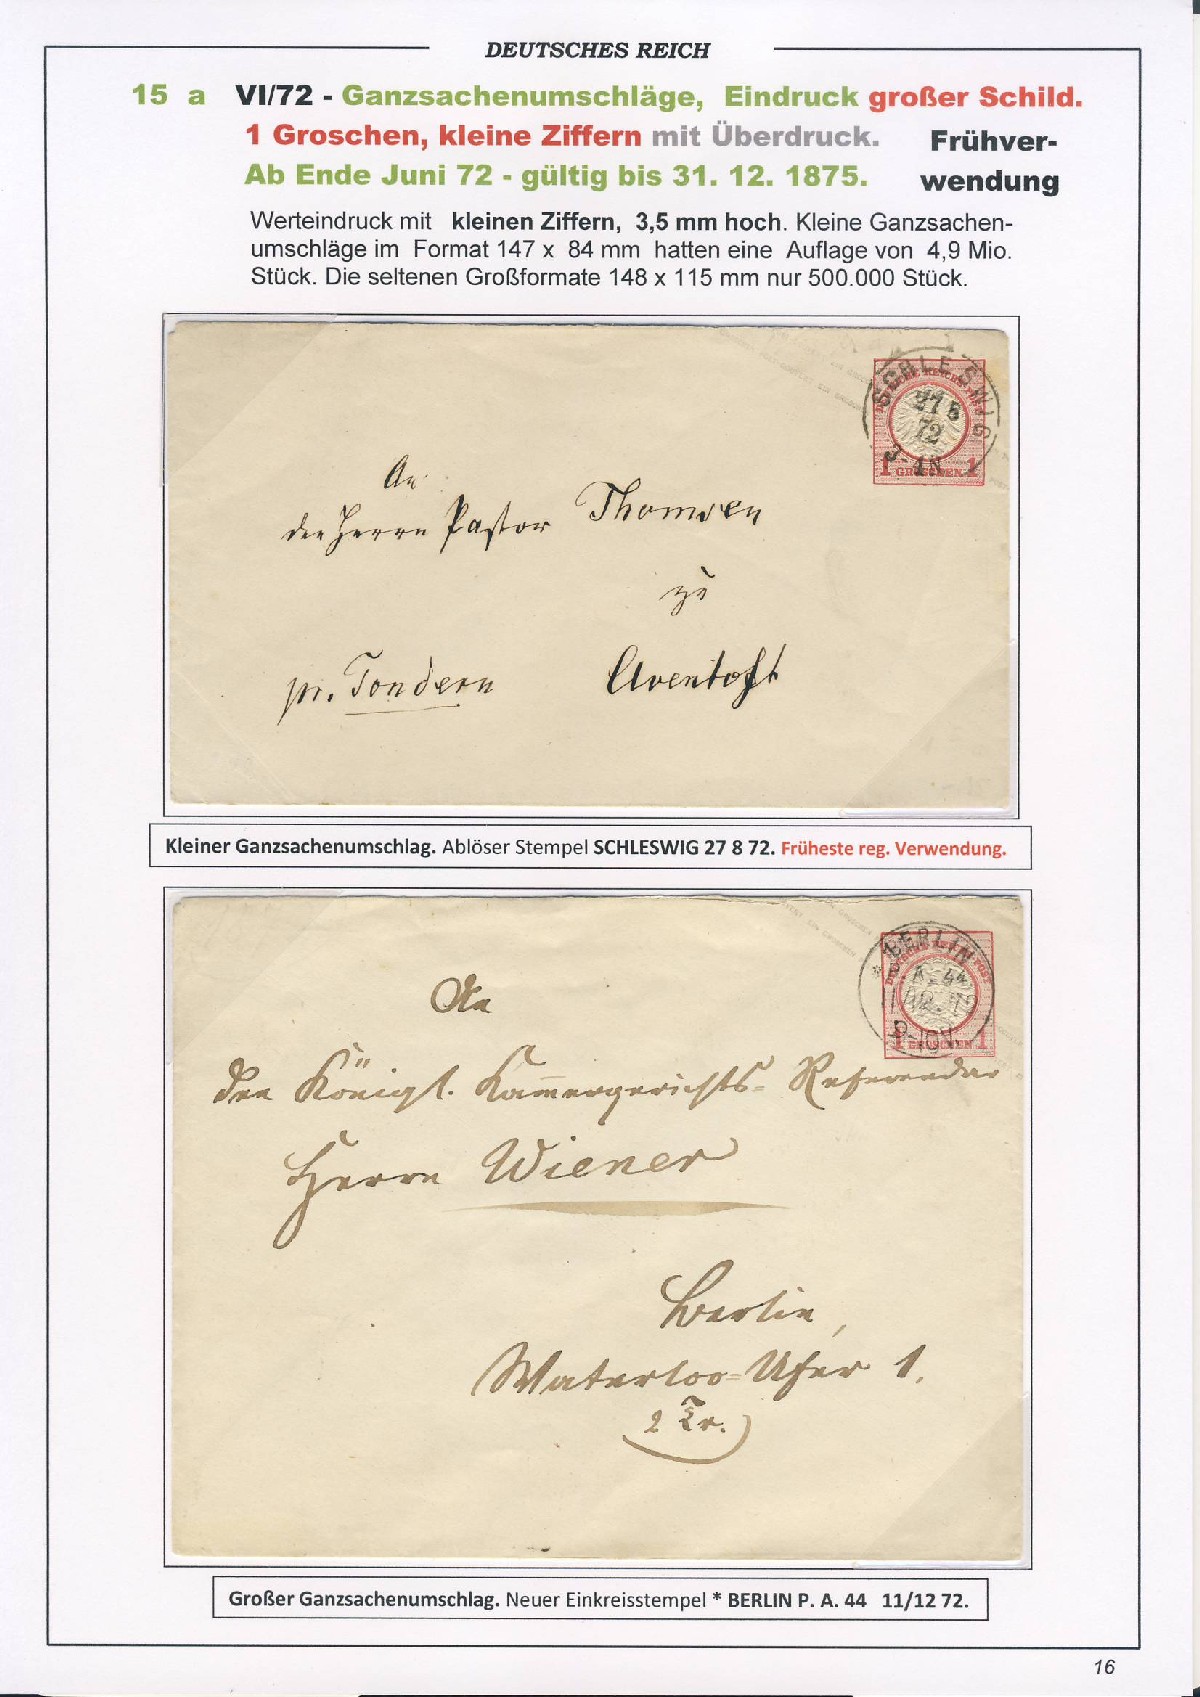 DEUTSCHES REICH
15 a VI/72 - Ganzsachenumschläge, Eindruck großer Schild.
1 Groschen, kleine Ziffern mit Überdruck. Frühver-
Ab Ende Juni 72 - gültig bis 31. 12. 1875. wendung
Werteindruck mit kleinen Ziffern, 3,5 mm hoch. Kleine Ganzsachen-
umschläge im Format 147 x 84 mm hatten eine Auflage von 4,9 Mio.
Stück. Die seltenen Großformate 148 x 115 mm nur 500.000 Stück.
SCHLESWIG
27 8
72
1 GROSCHEN 1
An
den Herrn Pastor Thomsen
zu
pr. Tondern Aventoft
Kleiner Ganzsachenumschlag. Ablöser Stempel SCHLESWIG 27 8 72. Früheste reg. Verwendung.
* BERLIN
1 GROSCHEN 1
An
den Königl. Kammergerichts-Referendar
Herrn Wiener
Berlin,
Waterloo-Ufer 1.
2 Tr.
Großer Ganzsachenumschlag. Neuer Einkreisstempel * BERLIN P. A. 44 11/12 72.
16